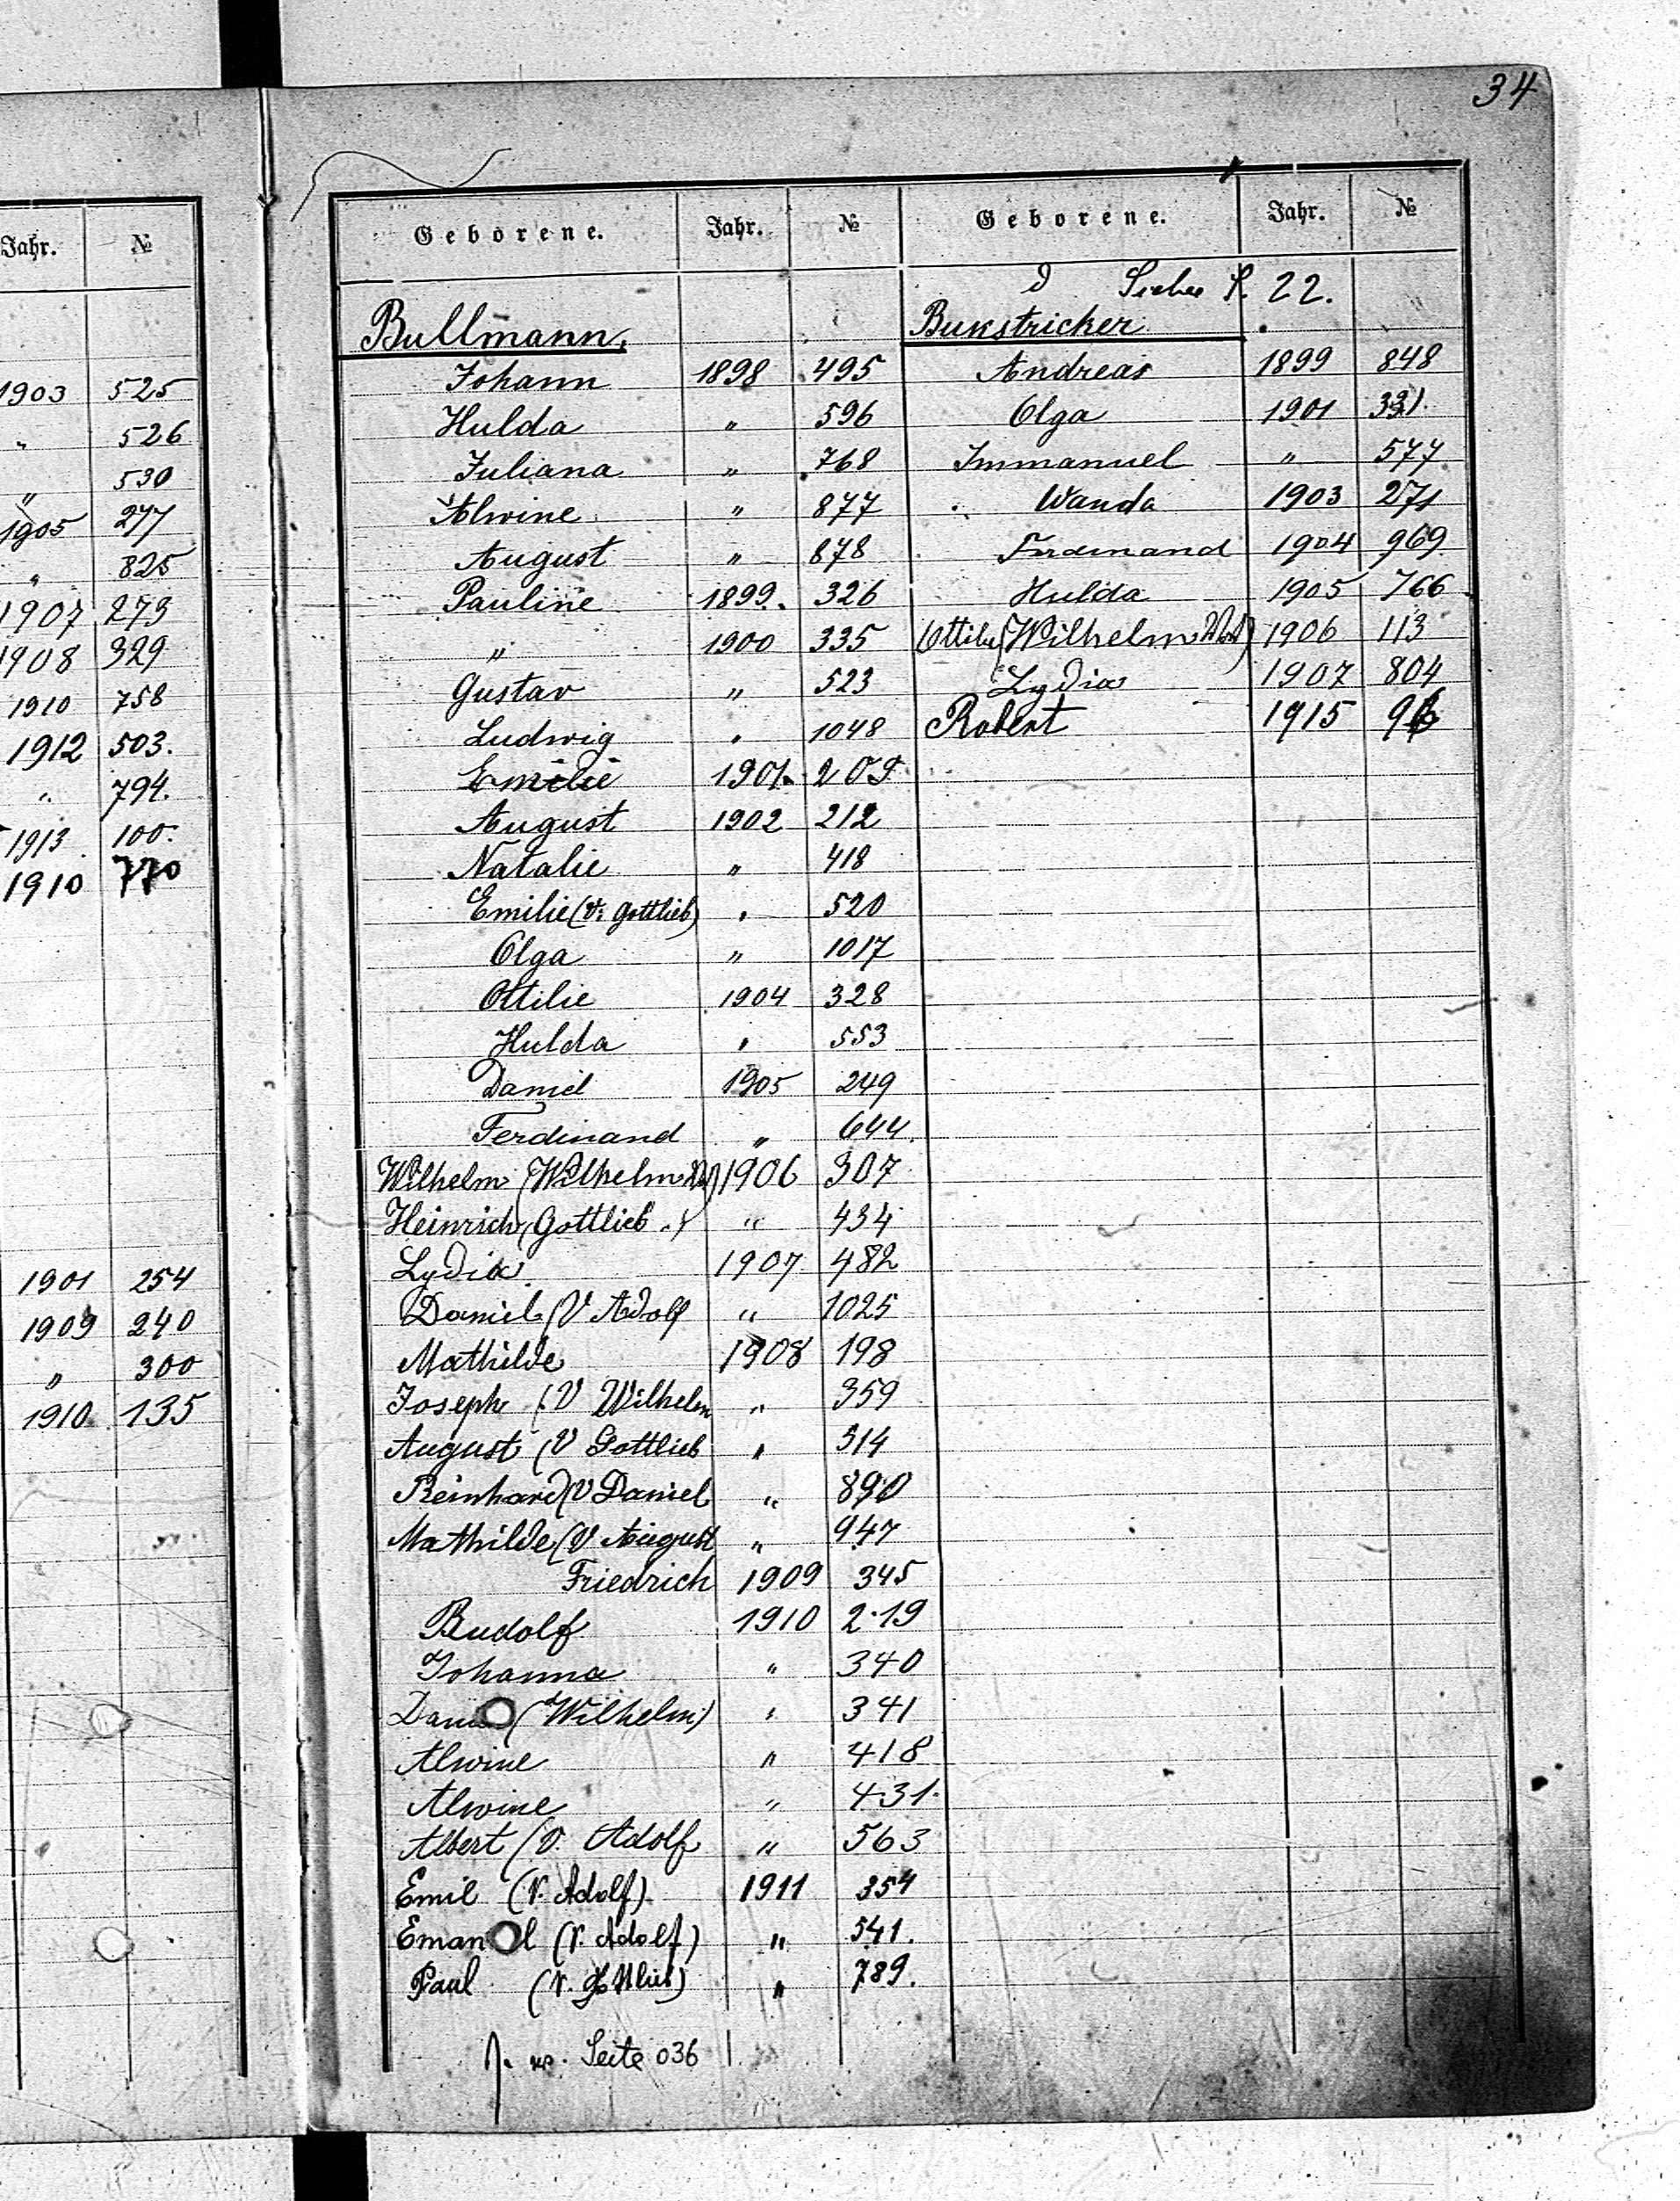 34
Jahr. №
1903 525
" 526
" 530
1905 277
" 825
1907 273
1908 329
1910 758
1912 503.
" 794.
1913 100.
1910 770
1901 254
1909 240
" 300
1910 135
Geborene. Jahr. №
Bullmann,
Johann 1898 495
Hulda " 596
Juliana " 768
Alwine " 877
August " 878
Pauline 1899. 326
" 1900 335
Gustav " 523
Ludwig " 1048
Emilie 1901. 209
August 1902 212
Natalie " 418
Emilie (V. Gottlieb) " 520
Olga " 1017
Ottilie 1904 328
Hulda " 553
Daniel 1905 249
Ferdinand " 644.
Wilhelm (Wilhelm 1906 307
Heinrich (Gottlieb " 434
Lydia 1907 482
Daniel (V Adolf " 1025
Mathilde 1908 198
Joseph (V Wilhelm " 359
August (V Gottlieb " 514
Reinhard (V Daniel " 890
Mathilde (V August " 947
Friedrich 1909 345
Rudolf 1910 219
Johanna " 340
(Wilhelm) " 341
Alwine " 418
Alwine " 431.
Albert (V. Adolf " 563
Emil (V. Adolf) 1911 354
(V. Adolf) " 541.
Paul (V. Gottlieb) " 789.
Seite 036
Geborene. Jahr. №
Siehe S. 22.
Bukstricker
Andreas 1899 848
Olga 1901 331.
Immanuel " 577
Wanda 1903 271
Ferdinand 1904 969
Hulda 1905 766
Ottilie (Wilhelm 1906 113
Lydia 1907 804
Robert 1915